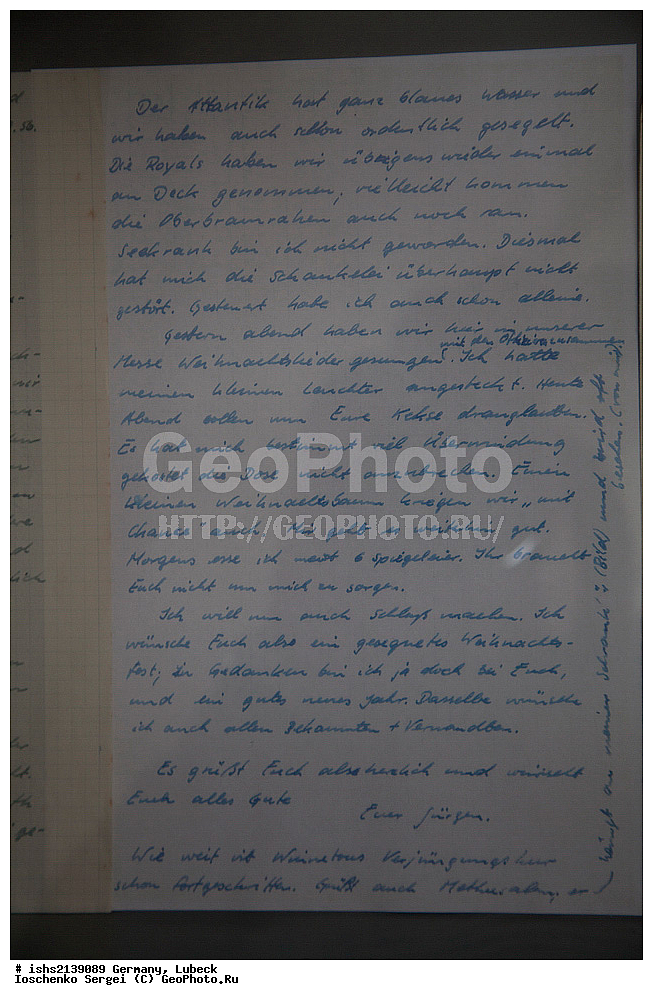 Der Atlantik hat ganz blaues Wasser und
wir haben auch schon ordentlich gesegelt.
Die Royals haben wir übrigens wieder einmal
an Deck genommen, vielleicht kommen
die Oberbramrahen auch noch ran.
Seekrank bin ich nicht geworden. Diesmal
hat mich die Schaukelei überhaupt nicht
gestört. Gesteuert habe ich auch schon alleine.
Gestern abend haben wir hier in unserer
mit den
Messe Weihnachtslieder gesungen. Ich hatte
meinen kleinen Leuchter angesteckt. Heute
Abend sollen nun Eure Kekse dranglauben.
Es hat mich bestimmt viel Überwindung
gekostet die Dose nicht anzubrechen. Einen
kleinen Weihnachtsbaum kriegen wir „mit
Chance" auch. Mir geht es weiterhin gut.
Morgens esse ich meist 6 Spiegeleier. Ihr braucht
Euch nicht um mich zu sorgen.
Ich will nun auch Schluß machen. Ich
wünsche Euch also ein gesegnetes Weihnachts-
fest, in Gedanken bin ich ja doch bei Euch,
und ein gutes neues Jahr. Dasselbe wünsche
ich auch allen Bekannten + Verwandten.
Es grüßt Euch also herzlich und wünscht
Euch alles Gute
Euer Jürgen.
Wie weit ist Winnetous Verjüngungskur
schon fortgeschritten. Grüßt auch er
hängt an meinem Schrank (Bild) und wird oft
besehen. (von mir)
GeoPhoto
HTTP://GEOPHOTO.RU/
# ishs2139089 Germany, Lubeck
Ioschenko Sergei (C) GeoPhoto.Ru